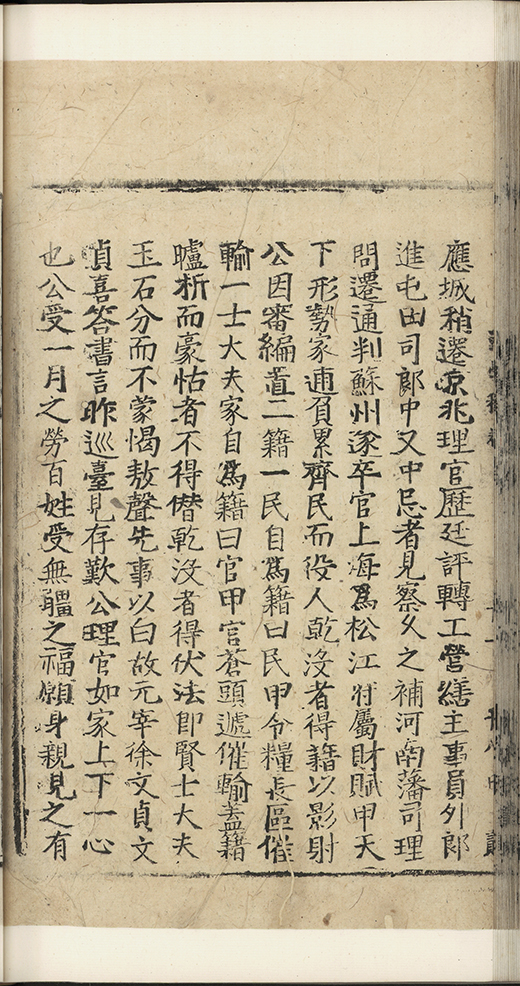 應城稍遷京兆理官歷廷評轉工營繕主事員外郎
進屯田司郎中又中忌者見察久之補河南藩司理
問遷通判蘇州遂卒官上海為松江府屬財賦甲天
下形勢家逋負累齊民而役人乾沒者得藉以影射
公因審編置二籍一民自為籍曰民甲令糧長區催
輸一士大夫家自為籍曰官甲官蒼頭遞催輸蓋籍
臚析而豪怙者不得僭乾沒者得伏法即賢士大夫
玉石分而不蒙愒敖聲先事以白故元宰徐文貞文
貞喜答書言昨巡臺見存歎公理官如家上下一心
也公受一月之勞百姓受無疆之福願身親見之有